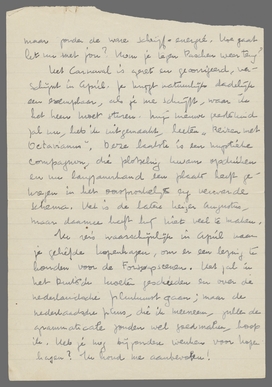 maar zonder de ware schrijf-energie. Hoe gaat
het nu met jou? Kom je tegen Paschen weer terug?
Het Carnaval is gezet en gecorrigeerd, ver-
schijnt in April. Je krijgt natuurlijk dadelijk
een exemplaar, als je me schrijft, waar ik
het heen moet sturen. Mijn nieuwe
zal nu, heb ik uitgemaakt, heeten "Reizen met
Octavianus". Deze laatste is een mystische
compagnon, die plotseling kwam opduiken
en langzamerhand een plaats heeft ge-
kregen in het oorspronkelijk erg verwarde
schema. Het is de latere keizer Augustus,
maar daarmee heeft hij niet veel te maken.
Ik reis waarschijnlijk in April naar
je geliefde Kopenhagen, om er een lezing te
houden voor de. Het zal in
het Duitsch moeten geschieden en over de
nederlandsche gaan; maar de
nederlandsche, die ik meeneem, zullen de
grammaticale zonden wel goedmaken, hoop
ik. Heb je nog bijzondere wenschen voor Kopen-
hagen? Ik houd me aanbevolen!